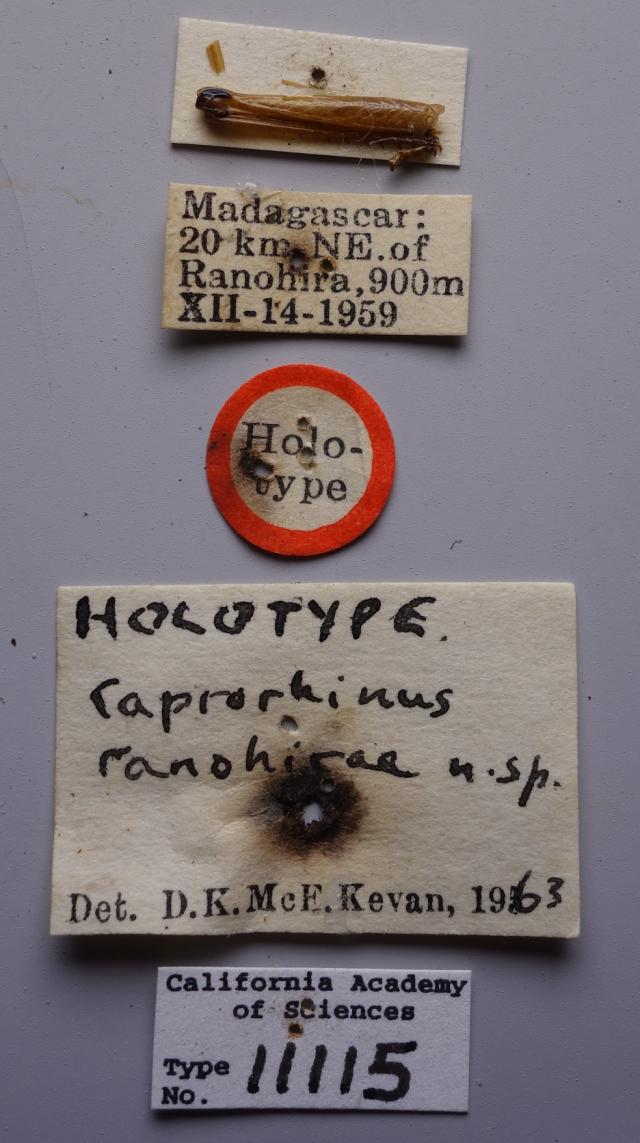 Madagascar:
20 km NE. of
Ranohira, 900m
XII-14-1959
Holo-
type
HOLOTYPE.
Caprorhinus
ranohirae n.sp.
Det. D.K.McE.Kevan, 1963
California Academy
of Sciences
Type
No. 11115